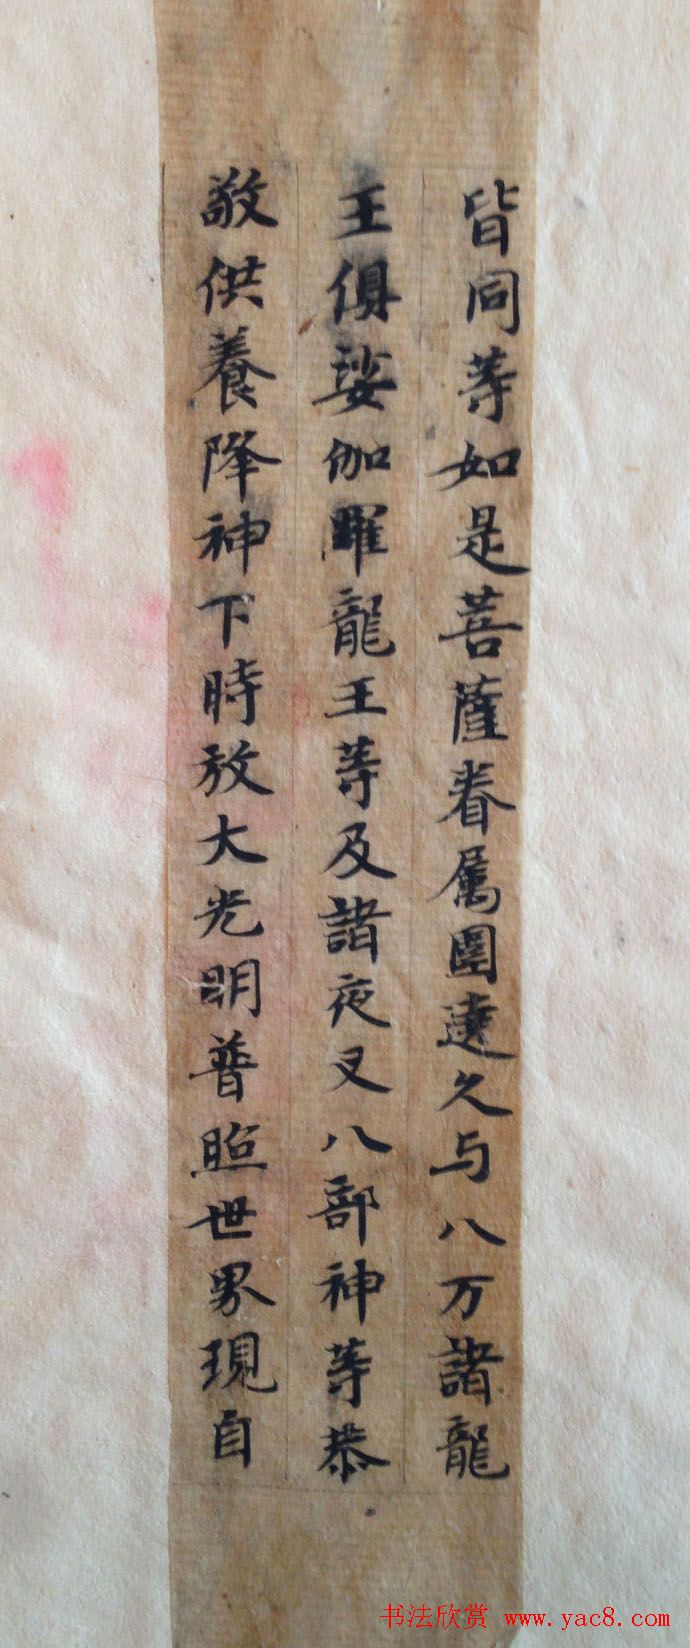 皆同等如是菩薩眷属圍遶久与八万諸龍
王俱娑伽羅龍王等及諸夜叉八部神等恭
敬供養降神下時放大光明普照世界現自
书法欣赏 www.yac8.com